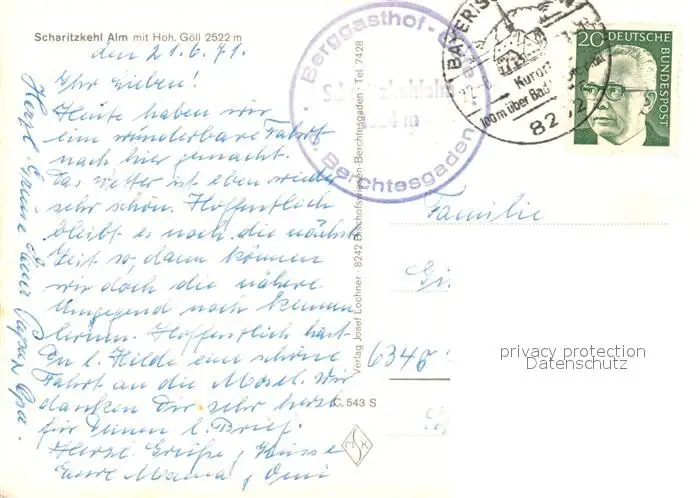 Scharitzkehl Alm mit Hoh. Göll 2522 m
den 21.6.71.
Ihr Lieben!
Heute haben wir
eine wunderbare Fahrt
nach hier gemacht.
Das Wetter ist eben wieder
sehr schön. Hoffentlich
bleibt es noch die nächste
Zeit so, dann können
wir doch die nähere
Umgegend noch kennen
lernen. Hoffentlich hast
Du l. Hilde eine schöne
Fahrt an die Mosel. Wir
danken Dir sehr herzl.
für Deinen l. Brief.
Herzl. Grüße, Küsse
Eure Mama, Omi
Herzl. Grüße Euer Papa, Opa.
Verlag Josef Lochner · 8242 Bischofswiesen-Berchtesgaden · Tel. 7428
C, 543 S
Berggasthof
b. Berchtesgaden
BAYERISCH
Kurort
100m über Bad
20 DEUTSCHE
BUNDESPOST
Familie
6348
privacy protection
Datenschutz